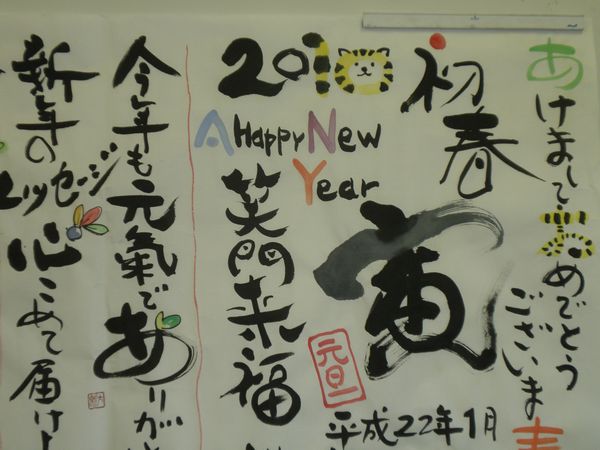 あけまして
おめでとう
ございま
初春
寅
平成22年1月
元旦
2010
A Happy New
Year
笑門来福
今年も元氣で
ありが
新年の
メッセージ
心こめて届け